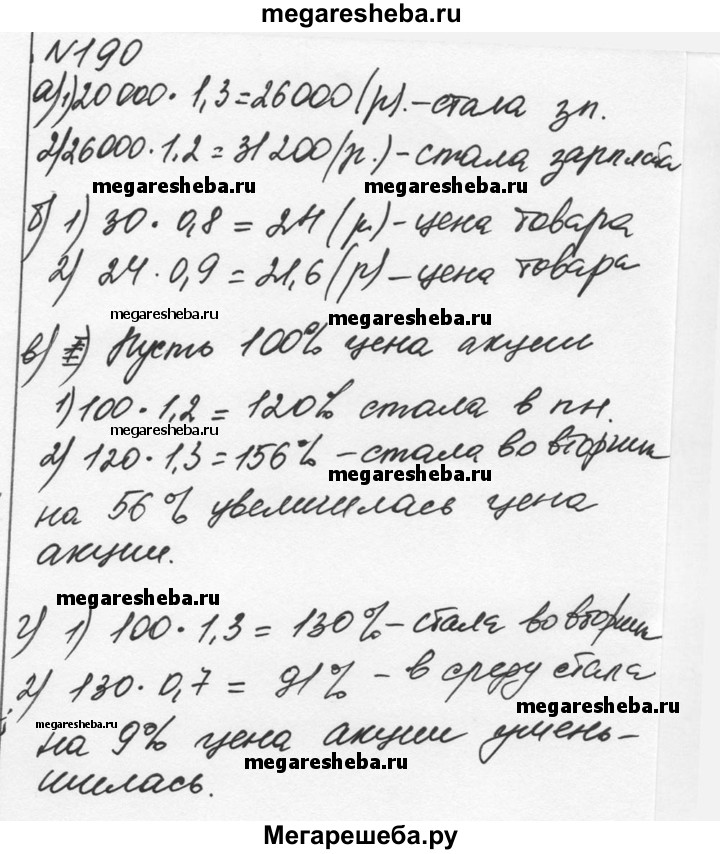 megaresheba.ru
№190
а)1)20000·1,3=26000(р).–стала зп.
2)26000·1.2=31200(р.)–стала зарплата
megaresheba.ru megaresheba.ru
б) 1) 30·0,8=24(р.)–цена товара
2) 24·0,9=21,6(р)–цена товара
megaresheba.ru megaresheba.ru
в) Пусть 100% цена акции
1)100·1,2=120% стала в пн.
megaresheba.ru
2) 120·1,3=156%–стала во вторник
megaresheba.ru
на 56% увеличилась цена
акции.
megaresheba.ru
г) 1) 100·1,3=130%–стала во вторник
2) 130·0,7=91% – в среду стала
megaresheba.ru
megaresheba.ru
на 9% цена акции умень-
megaresheba.ru
шилась.
Мегарешеба.ру